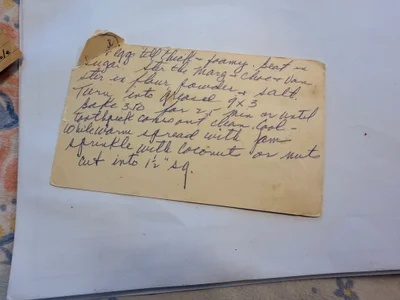 eggs till thick & foamy. Beat in
sugar. Stir the Marg & choc & Van
stir in flour powder & salt.
Turn into greased 9x3
bake 350 for 25 min or until
toothpick comes out clean. Cool -
While warm spread with jam
sprinkle with coconut or nuts
cut into 1½" sq.